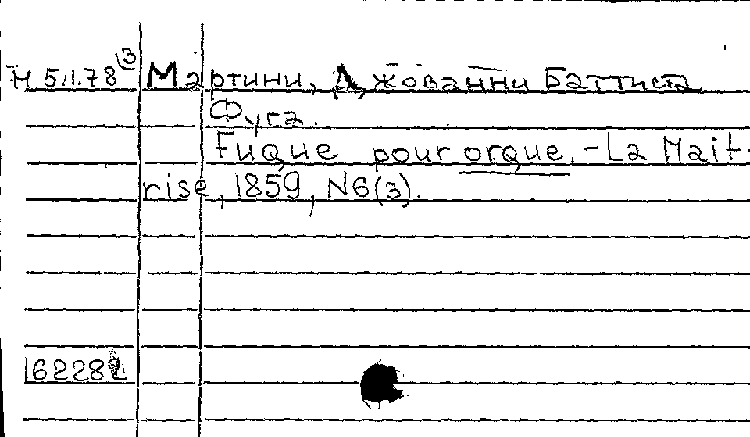 М 5.11.78 (3 Мартини, Джованни Баттиста
Фуга.
Fuque pour orque. - La Mait-
rise, 1859, N6(3).